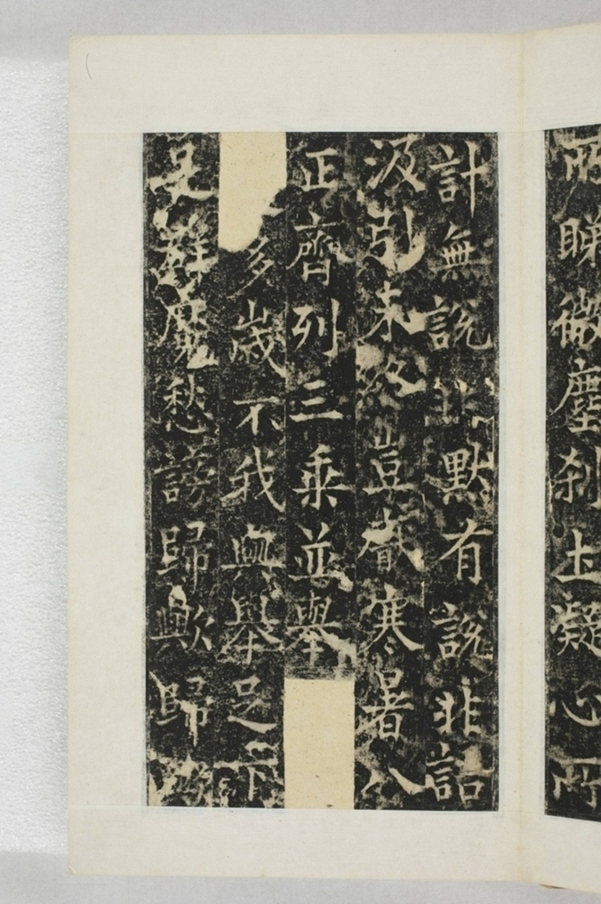 所睇微塵刹土凝心所
計無說非默有說非詔
汲引未終豈猒寒暑八
正齊列三乘並舉
多歲不我與舉足下
群魔愁謗歸歟歸